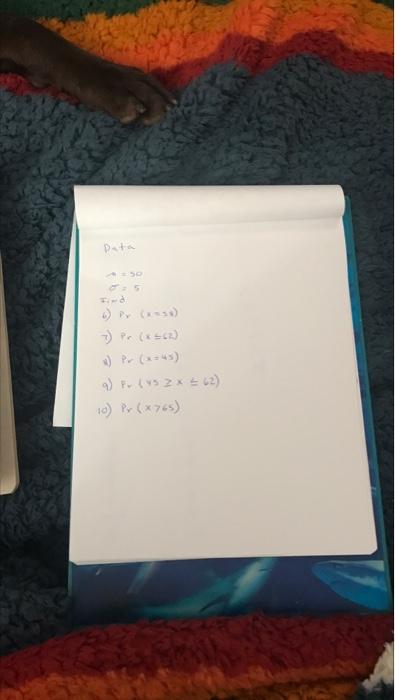 Data
μ = 50
σ = 5
Find
6) Pr (x=58)
7) Pr (x≤62)
8) Pr (x=45)
9) Pr (45 ≥ x ≤ 62)
10) Pr (x>65)